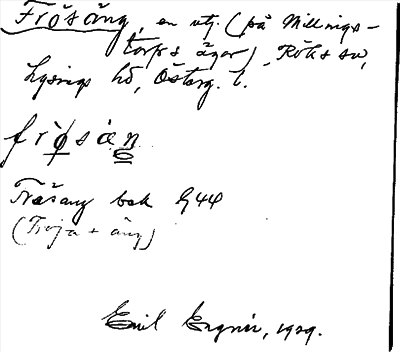 Frösäng, en utj. (på Millings-
torps ägor), Röks sn,
Lysings hd, Österg. l.
frø̀sæŋ
Träsang bak G44
(Troja + äng)
Emil Ergner, 1929.